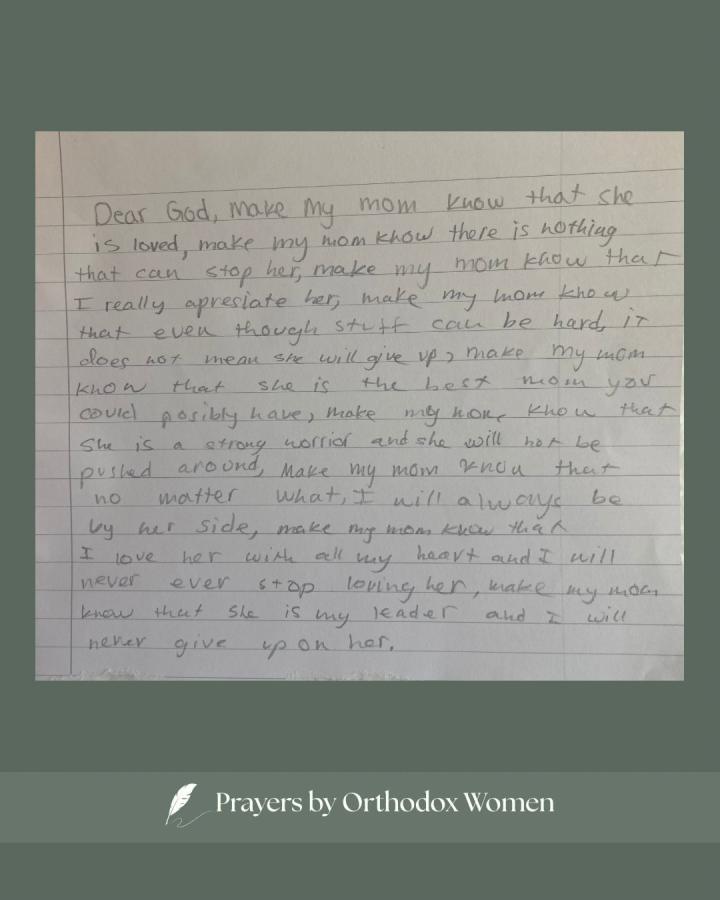 Dear God, make my mom know that she
is loved, make my mom know there is nothing
that can stop her, make my mom know that
I really apresiate her, make my mom know
that even though stuff can be hard, it
does not mean she will give up, make my mom
know that she is the best mom you
could posibly have, make my mom know that
she is a strong worrior and she will not be
pushed around, Make my mom know that
no matter what, I will always be
by her side, make my mom know that
I love her with all my heart and I will
never ever stop loving her, make my mom
know that she is my leader and I will
never give up on her.
Prayers by Orthodox Women